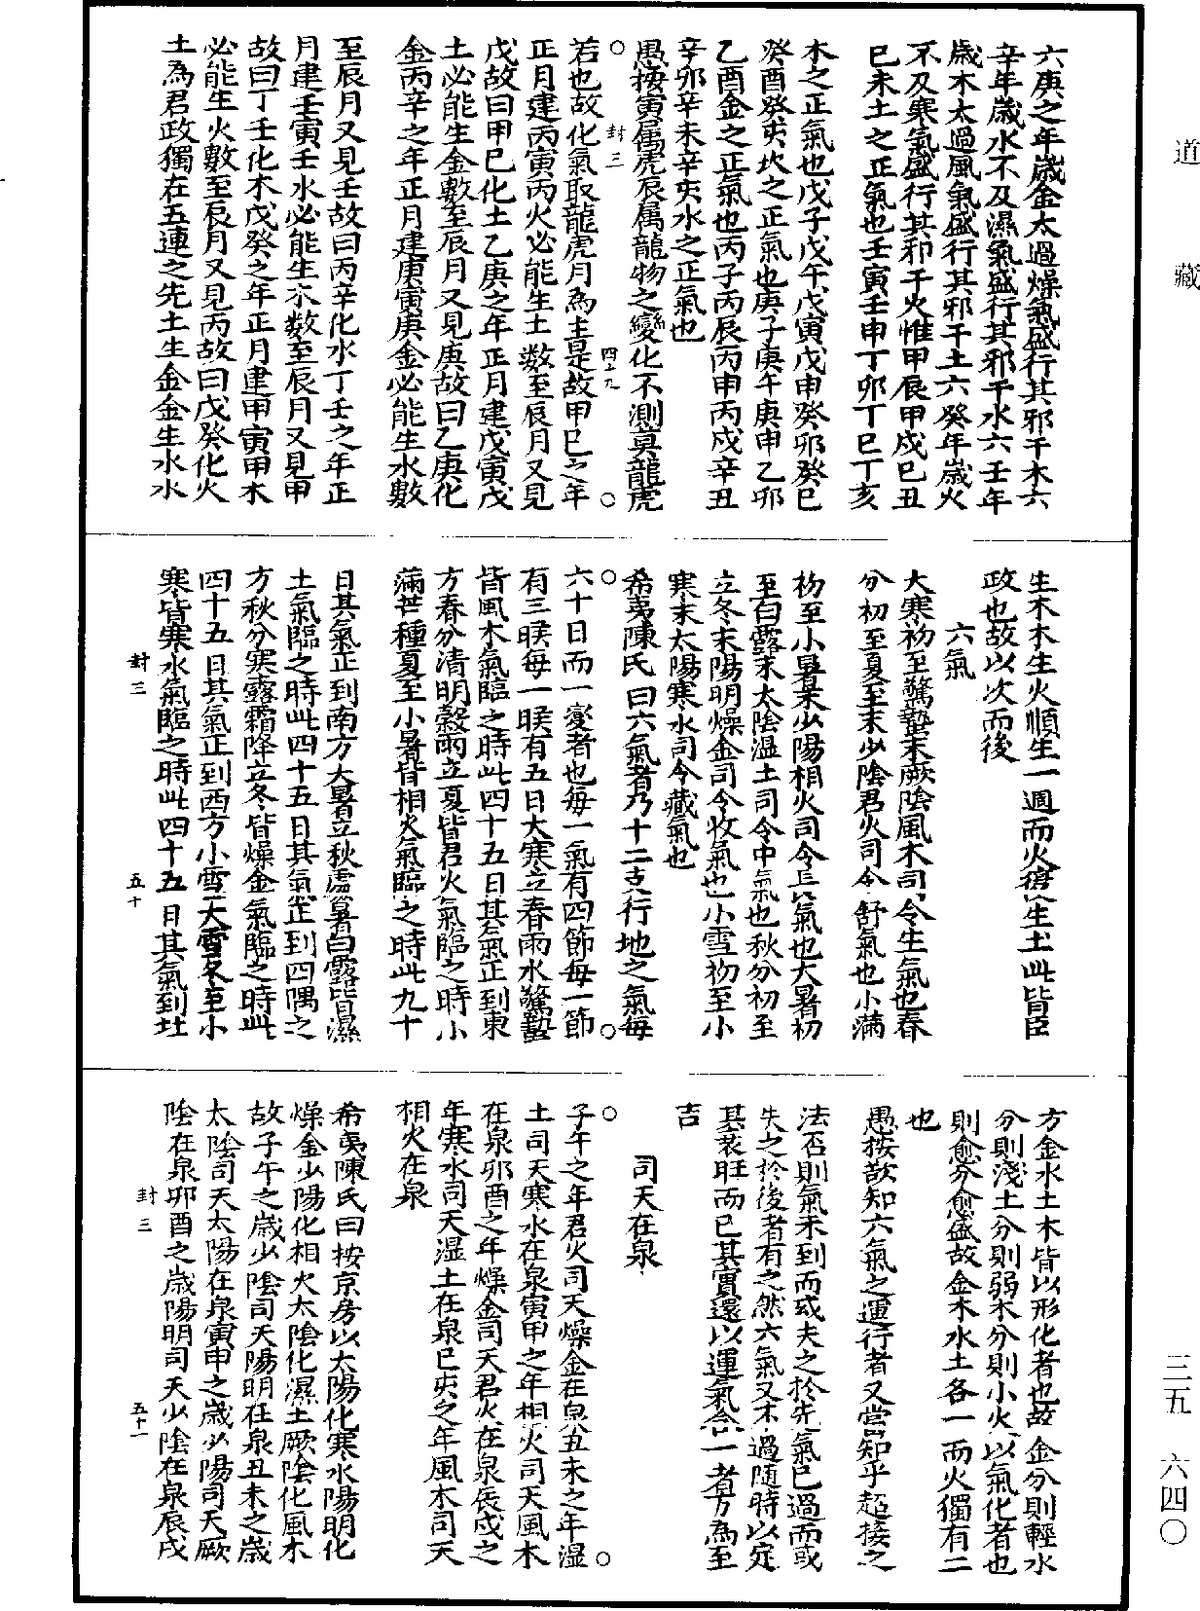 道藏
六庚之年歲金太過燥氣盛行其邪干木六
辛年歲水不及濕氣盛行其邪干水六壬年
歲木太過風氣盛行其邪干土六癸年歲火
不及寒氣盛行其邪干火惟甲辰甲戌巳丑
巳未土之正氣也壬寅壬申丁卯丁巳丁亥
木之正氣也戊子戊午戊寅戊申癸卯癸巳
癸酉癸亥坎之正氣也庚子庚午庚申乙卯
乙酉金之正氣也丙子丙辰丙申丙戌辛丑
辛卯辛未辛亥水之正氣也
愚按寅屬虎辰屬龍物之變化不測莫龍虎
封三 四十九
若也故化氣取龍虎月為主是故甲巳之年
正月建丙寅丙火必能生土數至辰月又見
戊故曰甲巳化土乙庚之年正月建戊寅戊
土必能生金數至辰月又見庚故曰乙庚化
金丙辛之年正月建庚寅庚金必能生水數
至辰月又見壬故曰丙辛化水丁壬之年正
月建壬寅壬水必能生木數至辰月又見甲
故曰丁壬化木戊癸之年正月建甲寅甲木
必能生火數至辰月又見丙故曰戊癸化火
土為君政獨在五運之先土生金金生水水
生木木生火順生一週而火復生土此皆臣
政也故以次而後
六氣
大寒初至驚蟄末厥陰風木司令生氣也春
分初至夏至末少陰君火司令舒氣也小滿
初至小暑末少陽相火司令長氣也大暑初
至白露末太陰溫土司令中氣也秋分初至
立冬末陽明燥金司令收氣也小雪初至小
寒末太陽寒水司令藏氣也
希夷陳氏曰六氣者乃十二支行地之氣每
六十日而一變者也每一氣有四節每一節
有三𠋫每一𠋫有五日大寒立春雨水驚蟄
皆風木氣臨之時此四十五日其氣正到東
方春分清明穀雨立夏皆君火氣臨之時小
滿芒種夏至小暑皆相火氣臨之時此九十
日其氣正到南方大暑立秋處暑白露皆濕
土氣臨之時此四十五日其氣正到四隅之
方秋分寒露霜降立冬皆燥金氣臨之時此
四十五日其氣正到西方小雪大雪冬至小
寒皆寒水氣臨之時此四十五日其氣到北
封三 五十
方金水土木皆以形化者也故金分則輕水
分則淺土分則弱木分則小火以氣化者也
則愈分愈盛故金木水土各一而火獨有二
也
愚按欲知六氣之運行者又當知乎超接之
法否則氣未到而或失之於先氣已過而或
失之於後者有之然六氣又不過隨時以定
其衰旺而已其實還以運氣合一者方為至
吉
司天在泉
子午之年君火司天燥金在泉丑未之年濕
土司天寒水在泉寅申之年相火司天風木
在泉卯酉之年燥金司天君火在泉辰戌之
年寒水司天濕土在泉巳亥之年風木司天
相火在泉
希夷陳氏曰按京房以太陽化寒水陽明化
燥金少陽化相火太陰化濕土厥陰化風木
故子午之歲少陰司天陽明在泉丑未之歲
太陰司天太陽在泉寅申之歲少陽司天厥
陰在泉卯酉之歲陽明司天少陰在泉辰戌
封三 五十一
三五 六四〇